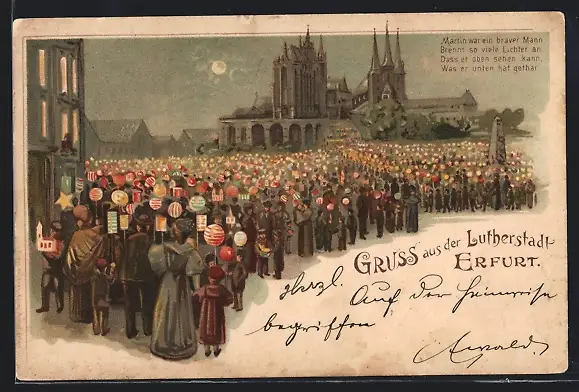 Martin war ein braver Mann
Brennt so viele Lichter an
Dass er oben sehen kann,
Was er unten hat gethan
Gruss aus der Lutherstadt
Erfurt.
Herzl.
Auf der Heimreise
begriffen
Ewald.